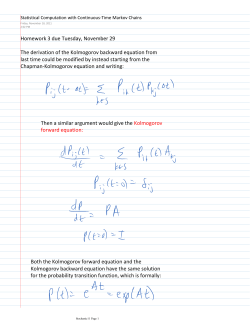 Statistical Computation with Continuous-Time Markov Chains
Homework 3 due Tuesday, November 29
The derivation of the Kolmogorov backward equation from
last time could be modified by instead starting from the
Chapman-Kolmogorov equation and writing:
P_ij(t+Δt) = Σ_{k∈S} P_ik(t) P_kj(Δt)
Then a similar argument would give the Kolmogorov
forward equation:
dP_ij(t)/dt = Σ_{k∈S} P_ik(t) A_kj
P_ij(t=0) = δ_ij
dP/dt = PA
P(t=0) = I
Both the Kolmogorov forward equation and the
Kolmogorov backward equation have the same solution
for the probability transition function, which is formally:
P(t) = e^{At} = exp(At)